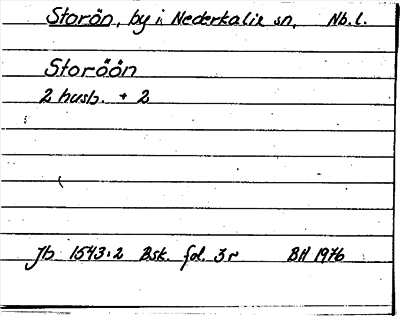 Storön, by i Nederkalix sn, Nb.l.
Storöön
2 husb. + 2
Jb 1543:2 Bsk. fol. 3r BH 1976